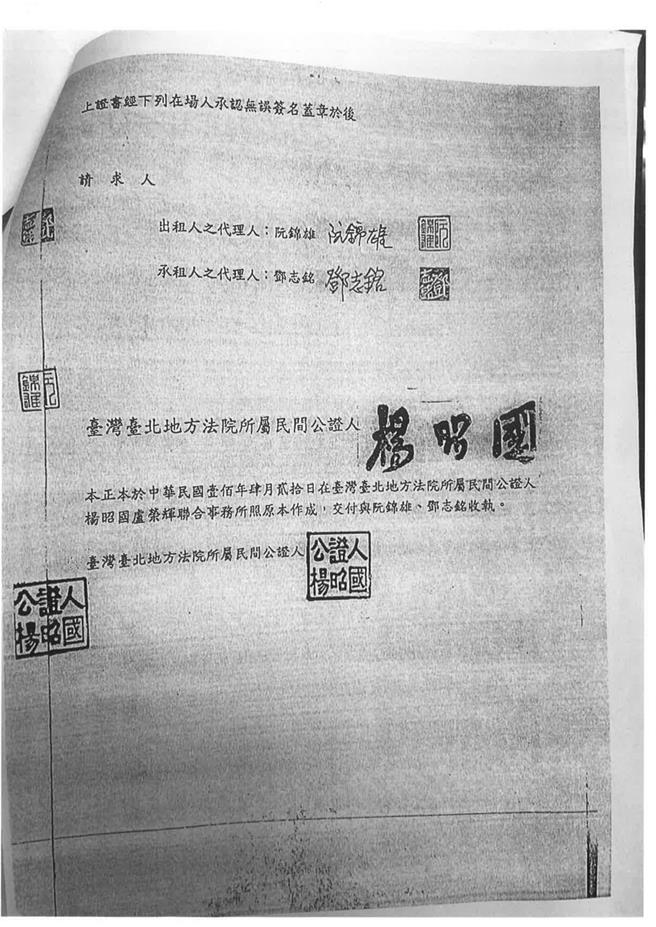 上證書經下列在場人承認無誤簽名蓋章於後
請求人
出租人之代理人：阮錦雄 阮錦雄
承租人之代理人：鄧志銘 鄧志銘
臺灣臺北地方法院所屬民間公證人 楊昭國
本正本於中華民國壹佰年肆月貳拾日在臺灣臺北地方法院所屬民間公證人
楊昭國盧榮輝聯合事務所照原本作成，交付與阮錦雄、鄧志銘收執。
臺灣臺北地方法院所屬民間公證人
公證人
楊昭國
公證人
楊昭國